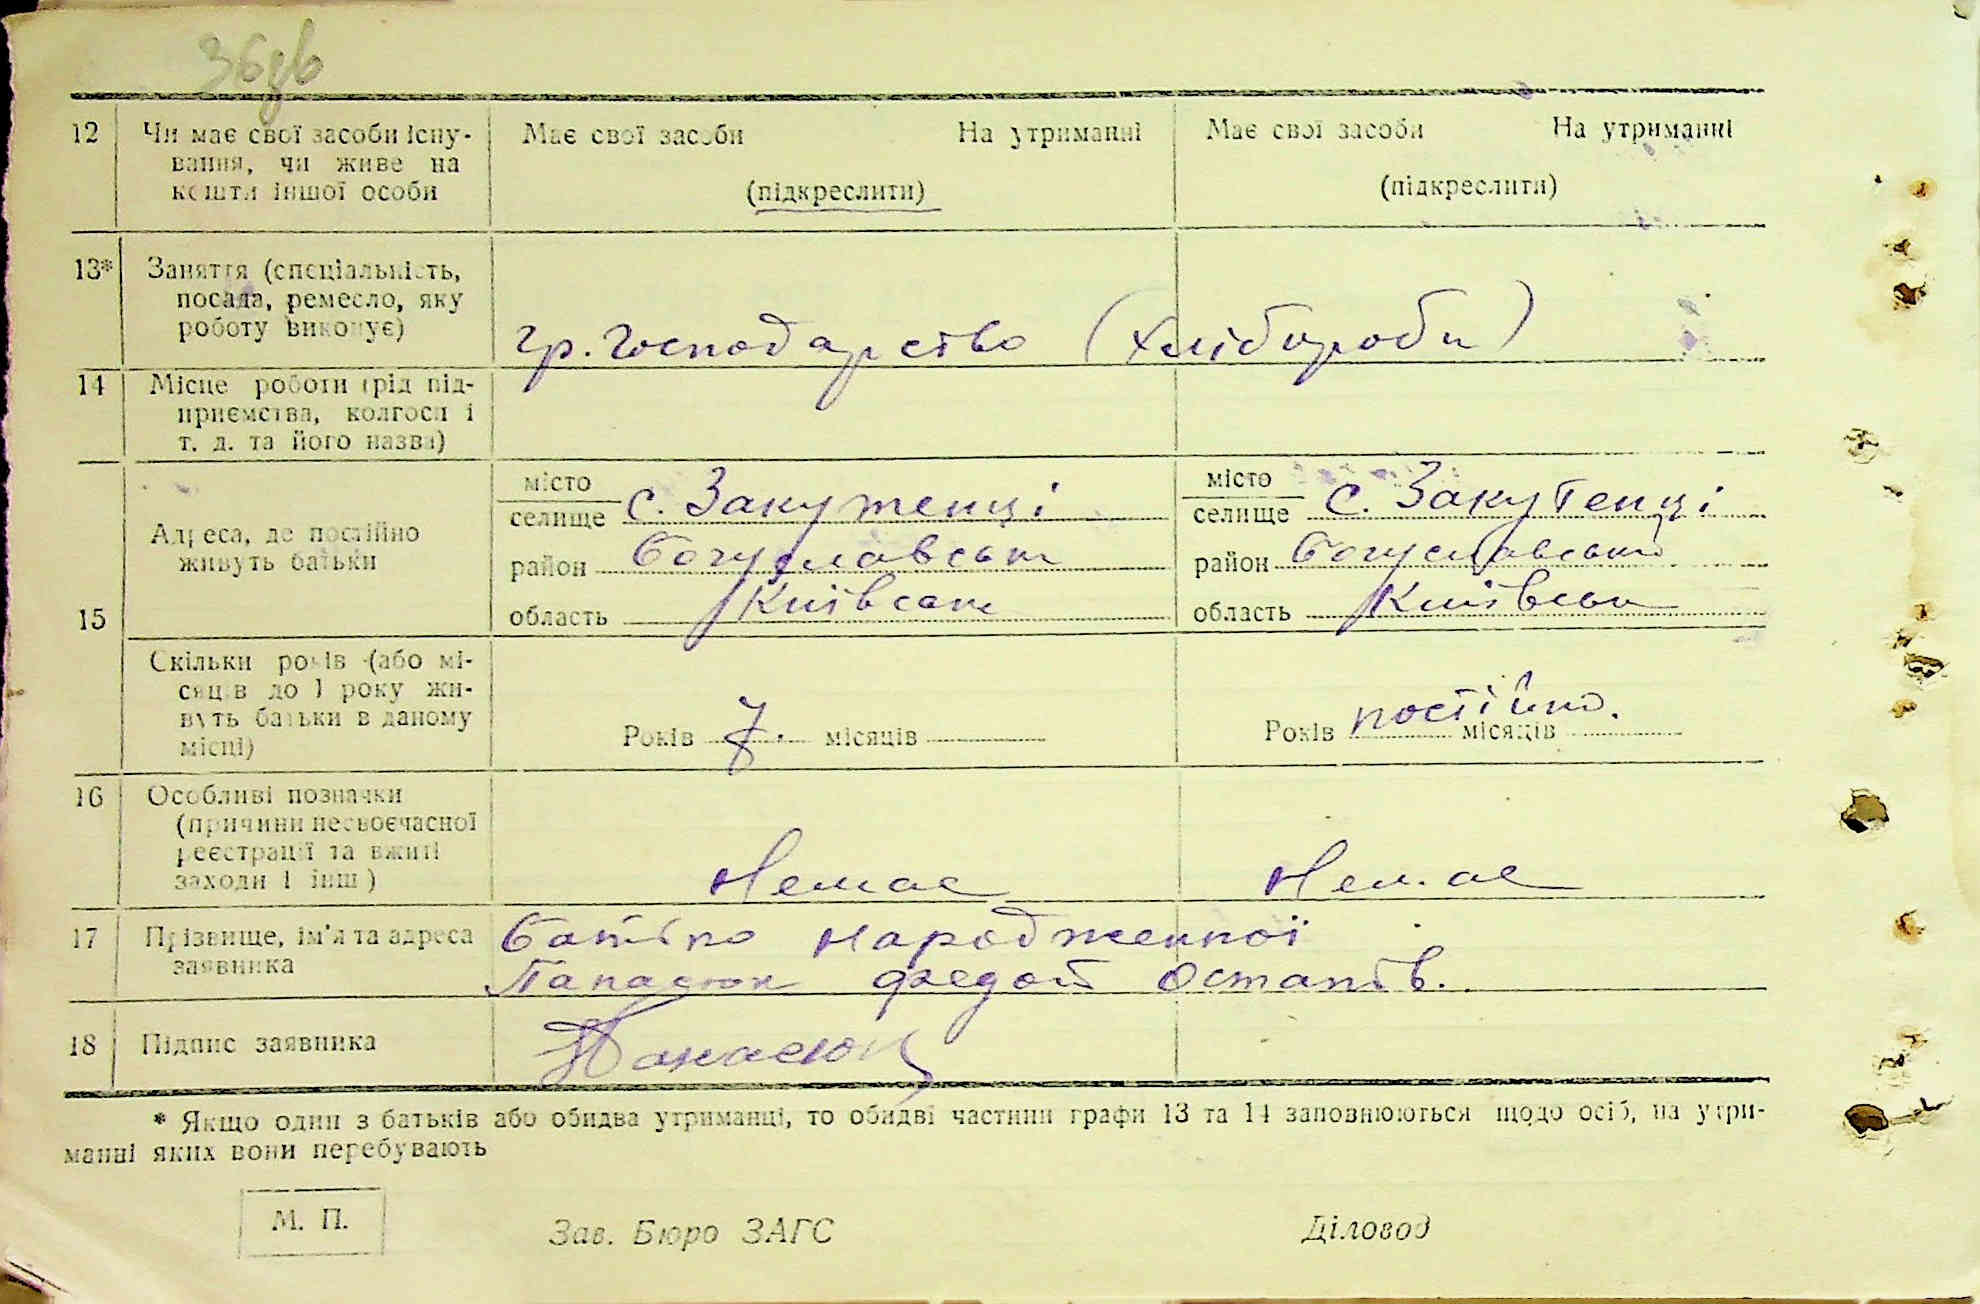 36зв
12 Чи має свої засоби існу- Має свої засоби На утриманні Має свої засоби На утриманні
вання, чи живе на
кошти іншої особи (підкреслити) (підкреслити)
13* Заняття (спеціальність,
посада, ремесло, яку
роботу виконує) гр. господарство (хлібороби)
14 Місце роботи (рід під-
приємства, колгосп і
т. д. та його назва)
15 Адреса, де постійно
живуть батьки
місто селище с. Закутенці місто селище с. Закутенці
район Богуславськ район Богуславський
область Київськ область Київськ
Скільки років (або мі-
сяців до 1 року жи-
вуть батьки в даному
місці) Років 7. місяців Років постійно. місяців
16 Особливі позначки
(причини несвоєчасної
реєстрації та вжиті
заходи і інш) Немає Немає
17 Прізвище, ім'я та адреса Батько народженної
заявника Панасюк Федот Остапів.
18 Підпис заявника Панасюк
* Якщо один з батьків або обидва утриманці, то обидві частини графи 13 та 14 заповнюються щодо осіб, на утри-
манні яких вони перебувають
М. П. Зав. Бюро ЗАГС Діловод